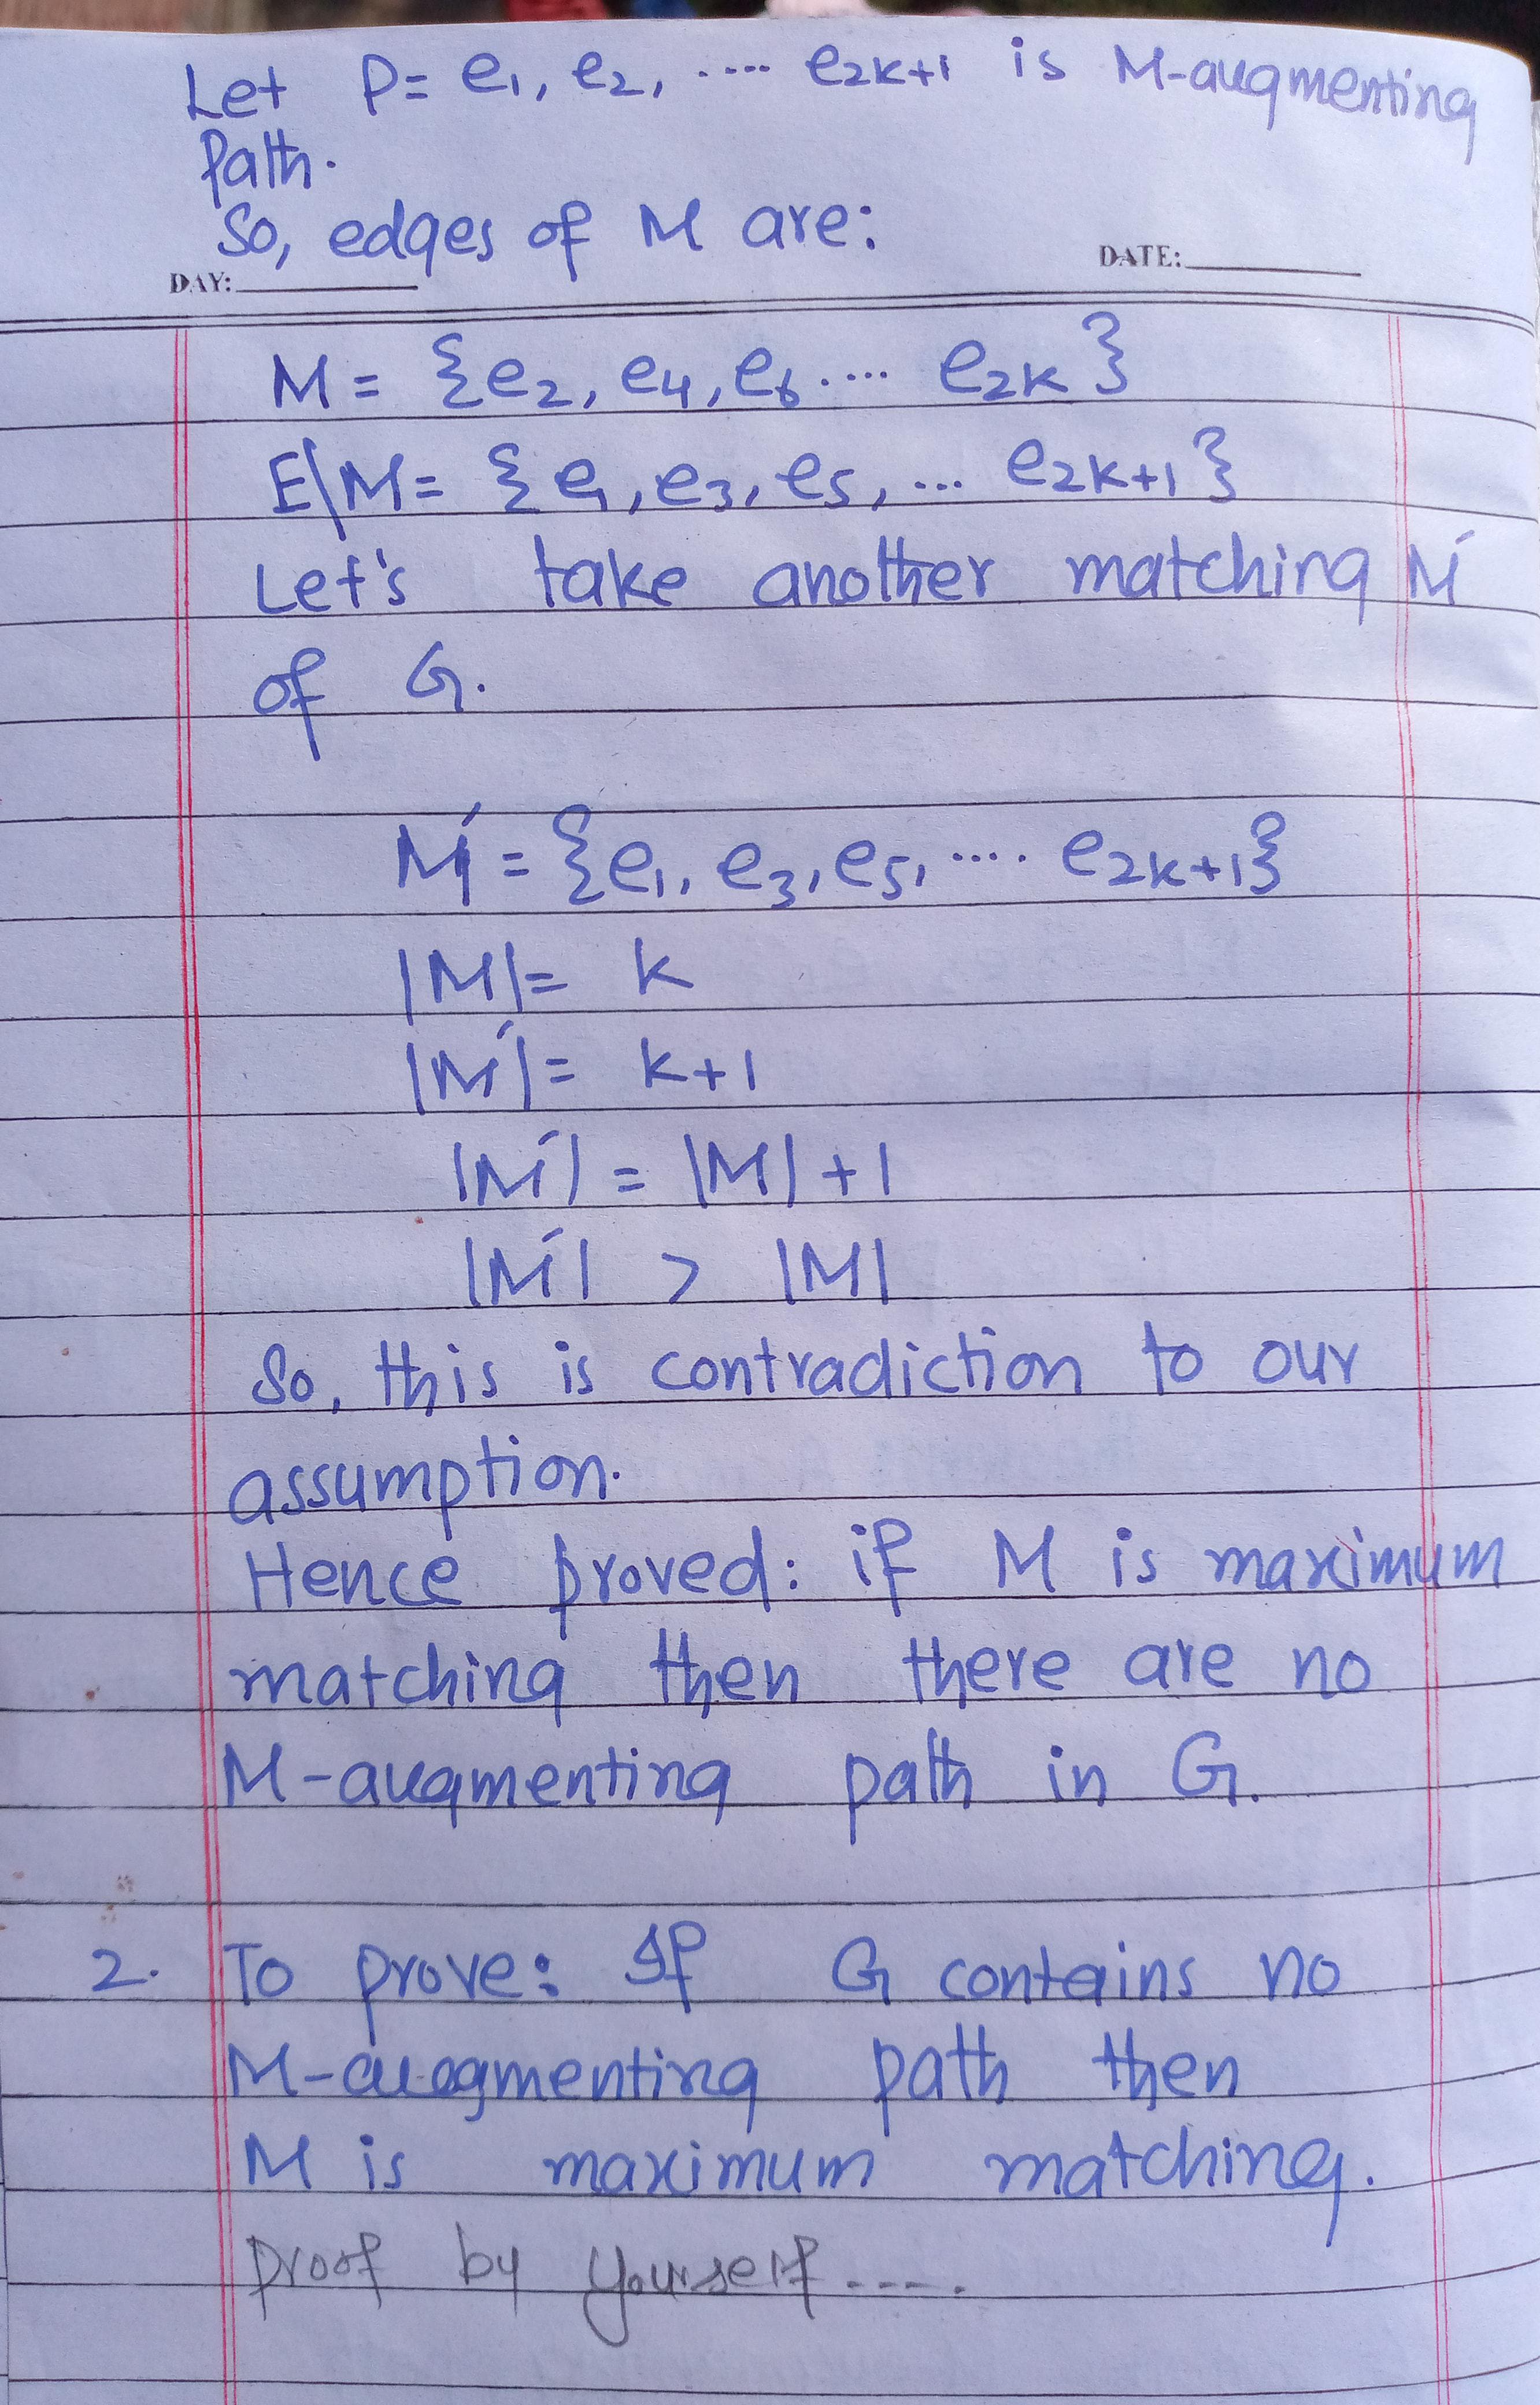 Let P = e₁, e₂, ···· e₂ₖ₊₁ is M-augmenting
Path.
So, edges of M are:
DAY: DATE:
M = {e₂, e₄, e₆ ···· e₂ₖ}
E\M = {e₁, e₃, e₅, ... e₂ₖ₊₁}
Let's take another matching M´
of G.
M´ = {e₁, e₃, e₅, ···· e₂ₖ₊₁}
|M| = k
|M´| = k+1
|M´| = |M| + 1
|M´| > |M|
So, this is contradiction to our
assumption.
Hence proved: if M is maximum
matching then there are no
M-augmenting path in G.
2. To prove: If G contains no
M-augmenting path then
M is maximum matching.
Proof by yourself ----.